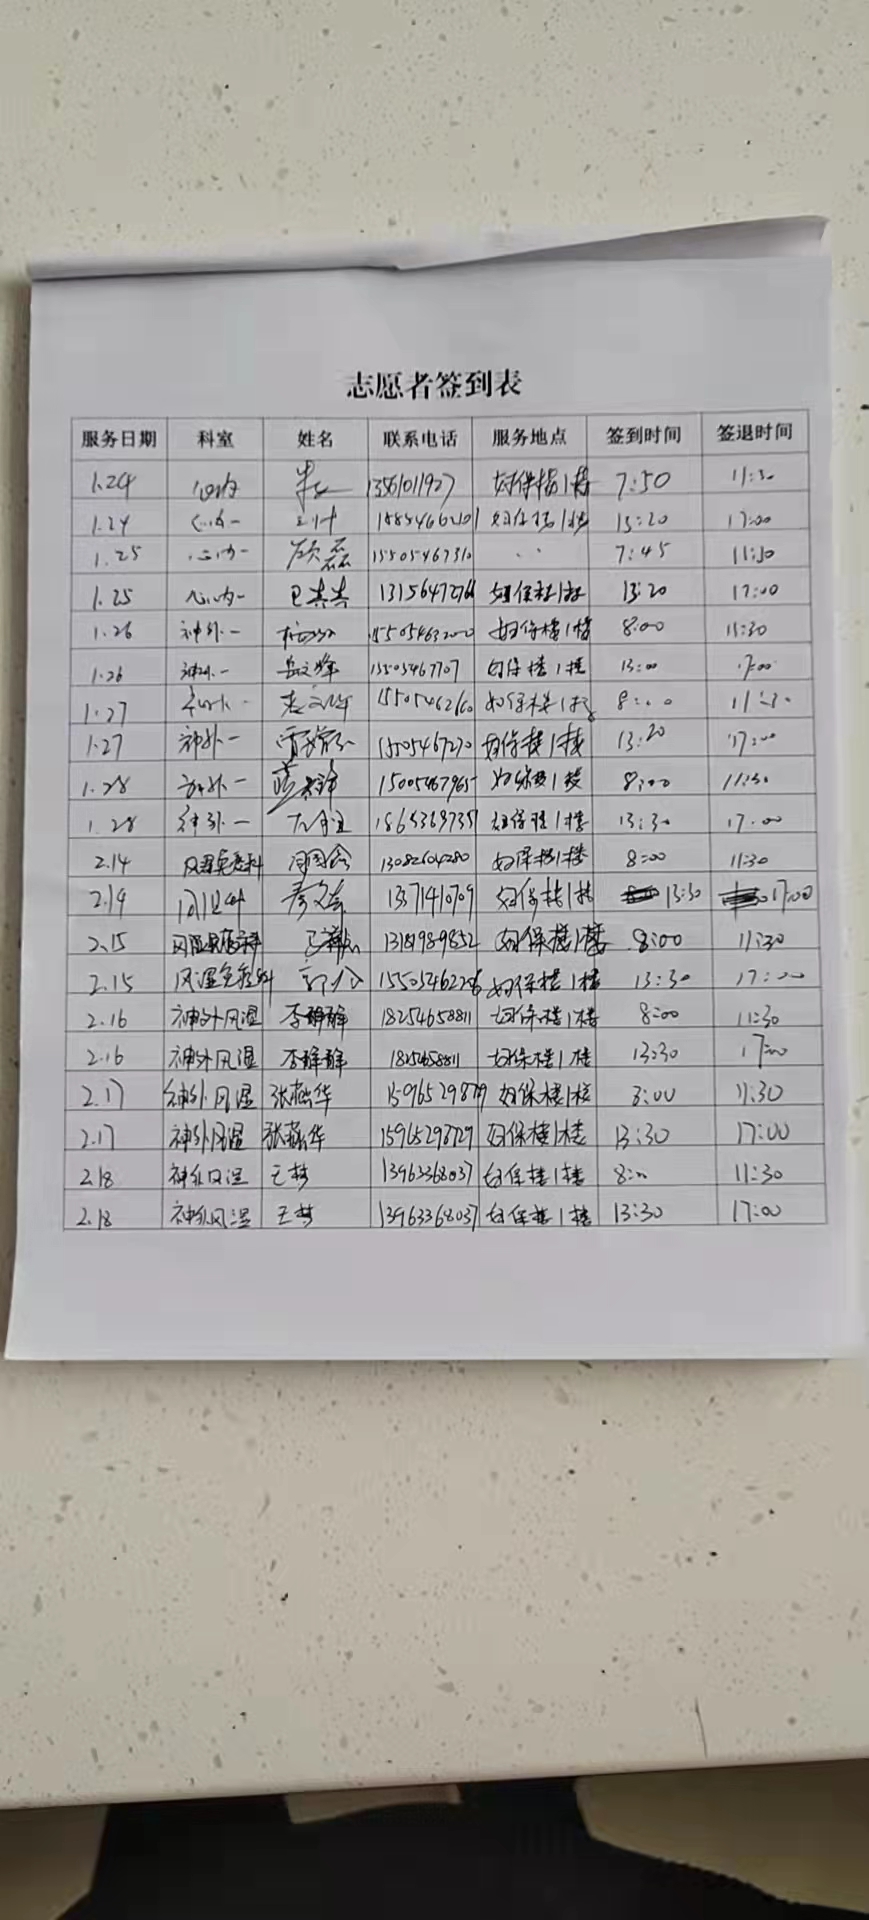 志愿者签到表
服务日期 科室 姓名 联系电话 服务地点 签到时间 签退时间
1.24 心内 13561011927 妇保楼1楼 7:50 11:30
1.24 心内一 妇保楼1楼 13:20 17:00
1.25 心内一 顾磊 15505467310 .. 7:45 11:30
1.25 心内一 13156472766 妇保楼1楼 13:20 17:00
1.26 神外一 妇保楼1楼 8:00 11:30
1.26 神外一 岳文峰 15505467707 妇保楼1楼 13:00 17:00
1.27 神外一 15505462160 妇保楼1楼 8:00 11:30
1.27 神外一 15505467270 妇保楼1楼 13:20 17:00
1.28 神外一 15005467965 妇保楼1楼 8:00 11:30
1.28 神外一 妇保楼1楼 13:30 17:00
2.14 风湿免疫科 13082604280 妇保楼1楼 8:00 11:30
2.14 13371410709 妇保楼1楼 13:30 17:00
2.15 风湿免疫科 13181989852 妇保楼1楼 8:00 11:30
2.15 风湿免疫科 妇保楼1楼 13:30 17:00
2.16 神外风湿 李静静 18254658811 妇保楼1楼 8:00 11:30
2.16 神外风湿 李静静 18254658811 妇保楼1楼 13:30 17:00
2.17 神外风湿 张燕华 15965298729 妇保楼1楼 8:00 11:30
2.17 神外风湿 张燕华 15965298729 妇保楼1楼 13:30 17:00
2.18 神外风湿 王梦 13963368037 妇保楼1楼 8:00 11:30
2.18 神外风湿 王梦 13963368037 妇保楼1楼 13:30 17:00